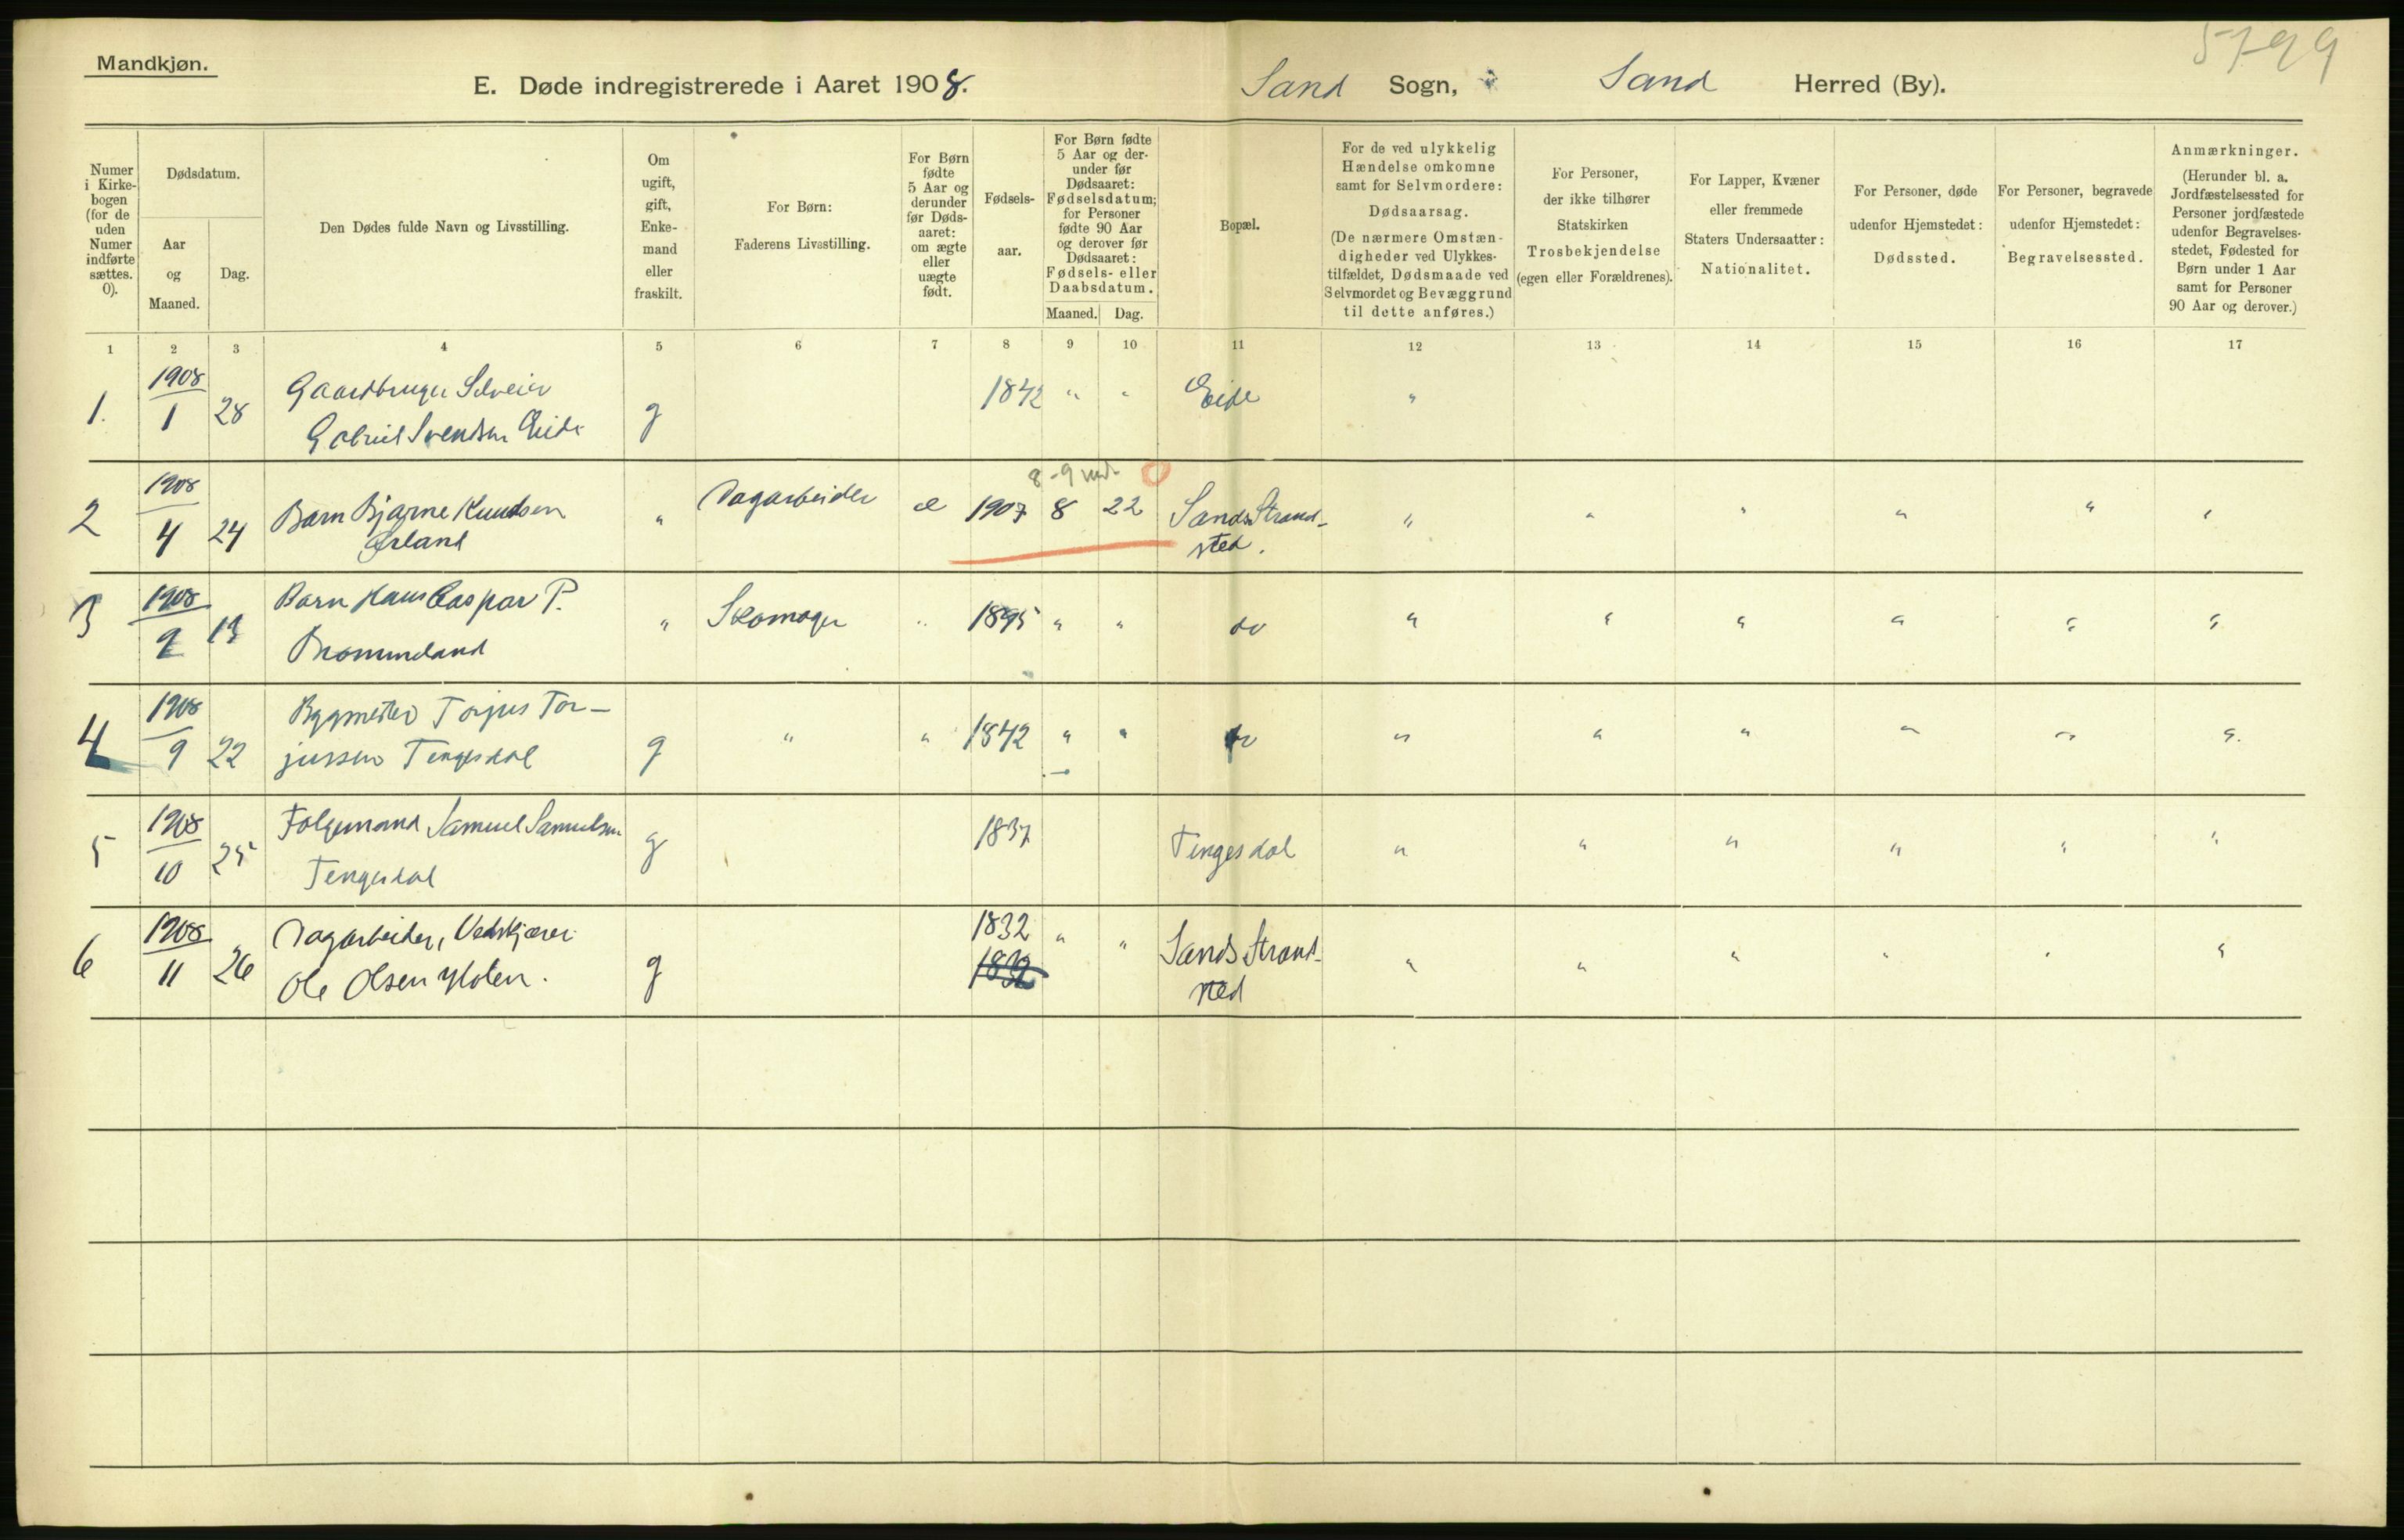 5799
Mandkjøn.
E. Døde indregistrerede i Aaret 1908. Sand Sogn, Sand Herred (By).
Numer i Kirke-bogen (for de uden Numer indførte sættes. 0).
Dødsdatum.
Aar og Maaned.
Dag.
Den Dødes fulde Navn og Livsstilling.
Om ugift, gift, Enke-mand eller fraskilt.
For Børn:
Faderens Livsstilling.
For Børn fødte 5 Aar og derunder før Døds-aaret: om ægte eller uægte født.
Fødsels-aar.
For Børn fødte 5 Aar og der-under før Dødsaaret: Fødselsdatum; for Personer fødte 90 Aar og derover før Dødsaaret: Fødsels- eller Daabsdatum.
Maaned. Dag.
Bopæl.
For de ved ulykkelig Hændelse omkomne samt for Selvmordere:
Dødsaarsag.
(De nærmere Omstæn-digheder ved Ulykkes-tilfældet, Dødsmaade ved Selvmordet og Bevæggrund til dette anføres.)
For Personer, der ikke tilhører Statskirken
Trosbekjendelse
(egen eller Forældrenes).
For Lapper, Kvæner eller fremmede Staters Undersaatter:
Nationalitet.
For Personer, døde udenfor Hjemstedet:
Dødssted.
For Personer, begravede udenfor Hjemstedet:
Begravelsessted.
Anmærkninger.
(Herunder bl. a. Jordfæstelsessted for Personer jordfæstede udenfor Begravelses-stedet, Fødested for Børn under 1 Aar samt for Personer 90 Aar og derover.)
1 2 3 4 5 6 7 8 9 10 11 12 13 14 15 16 17
1. 1908 1 28 Gaardbruger Selveier g 1842 " " Eide "
Gabriel Svendsen Eide
8-9 md. 0
2 1908 4 24 Barn Bjarne Knudsen " Dagarbeider æ 1907 8 22 Sands Strand- " " " " " "
Ørland sted.
3 1908 9 13 Barn Hans Caspar P. " Skomager " 1895 " " do " " " " " "
Brommeland
4 1908 9 22 Bygmester Torjus Tor- g " " 1842 " " do " " " " " "
jussen Tengesdal
5 1908 10 25 Folgemand Samuel Samuelsen g 1837 Tengesdal " " " " " "
Tengesdal
6 1908 11 26 Dagarbeider, Vedskjærer g 1832 " " Sands Strand- " " " " " "
Ole Olsen 1832 sted